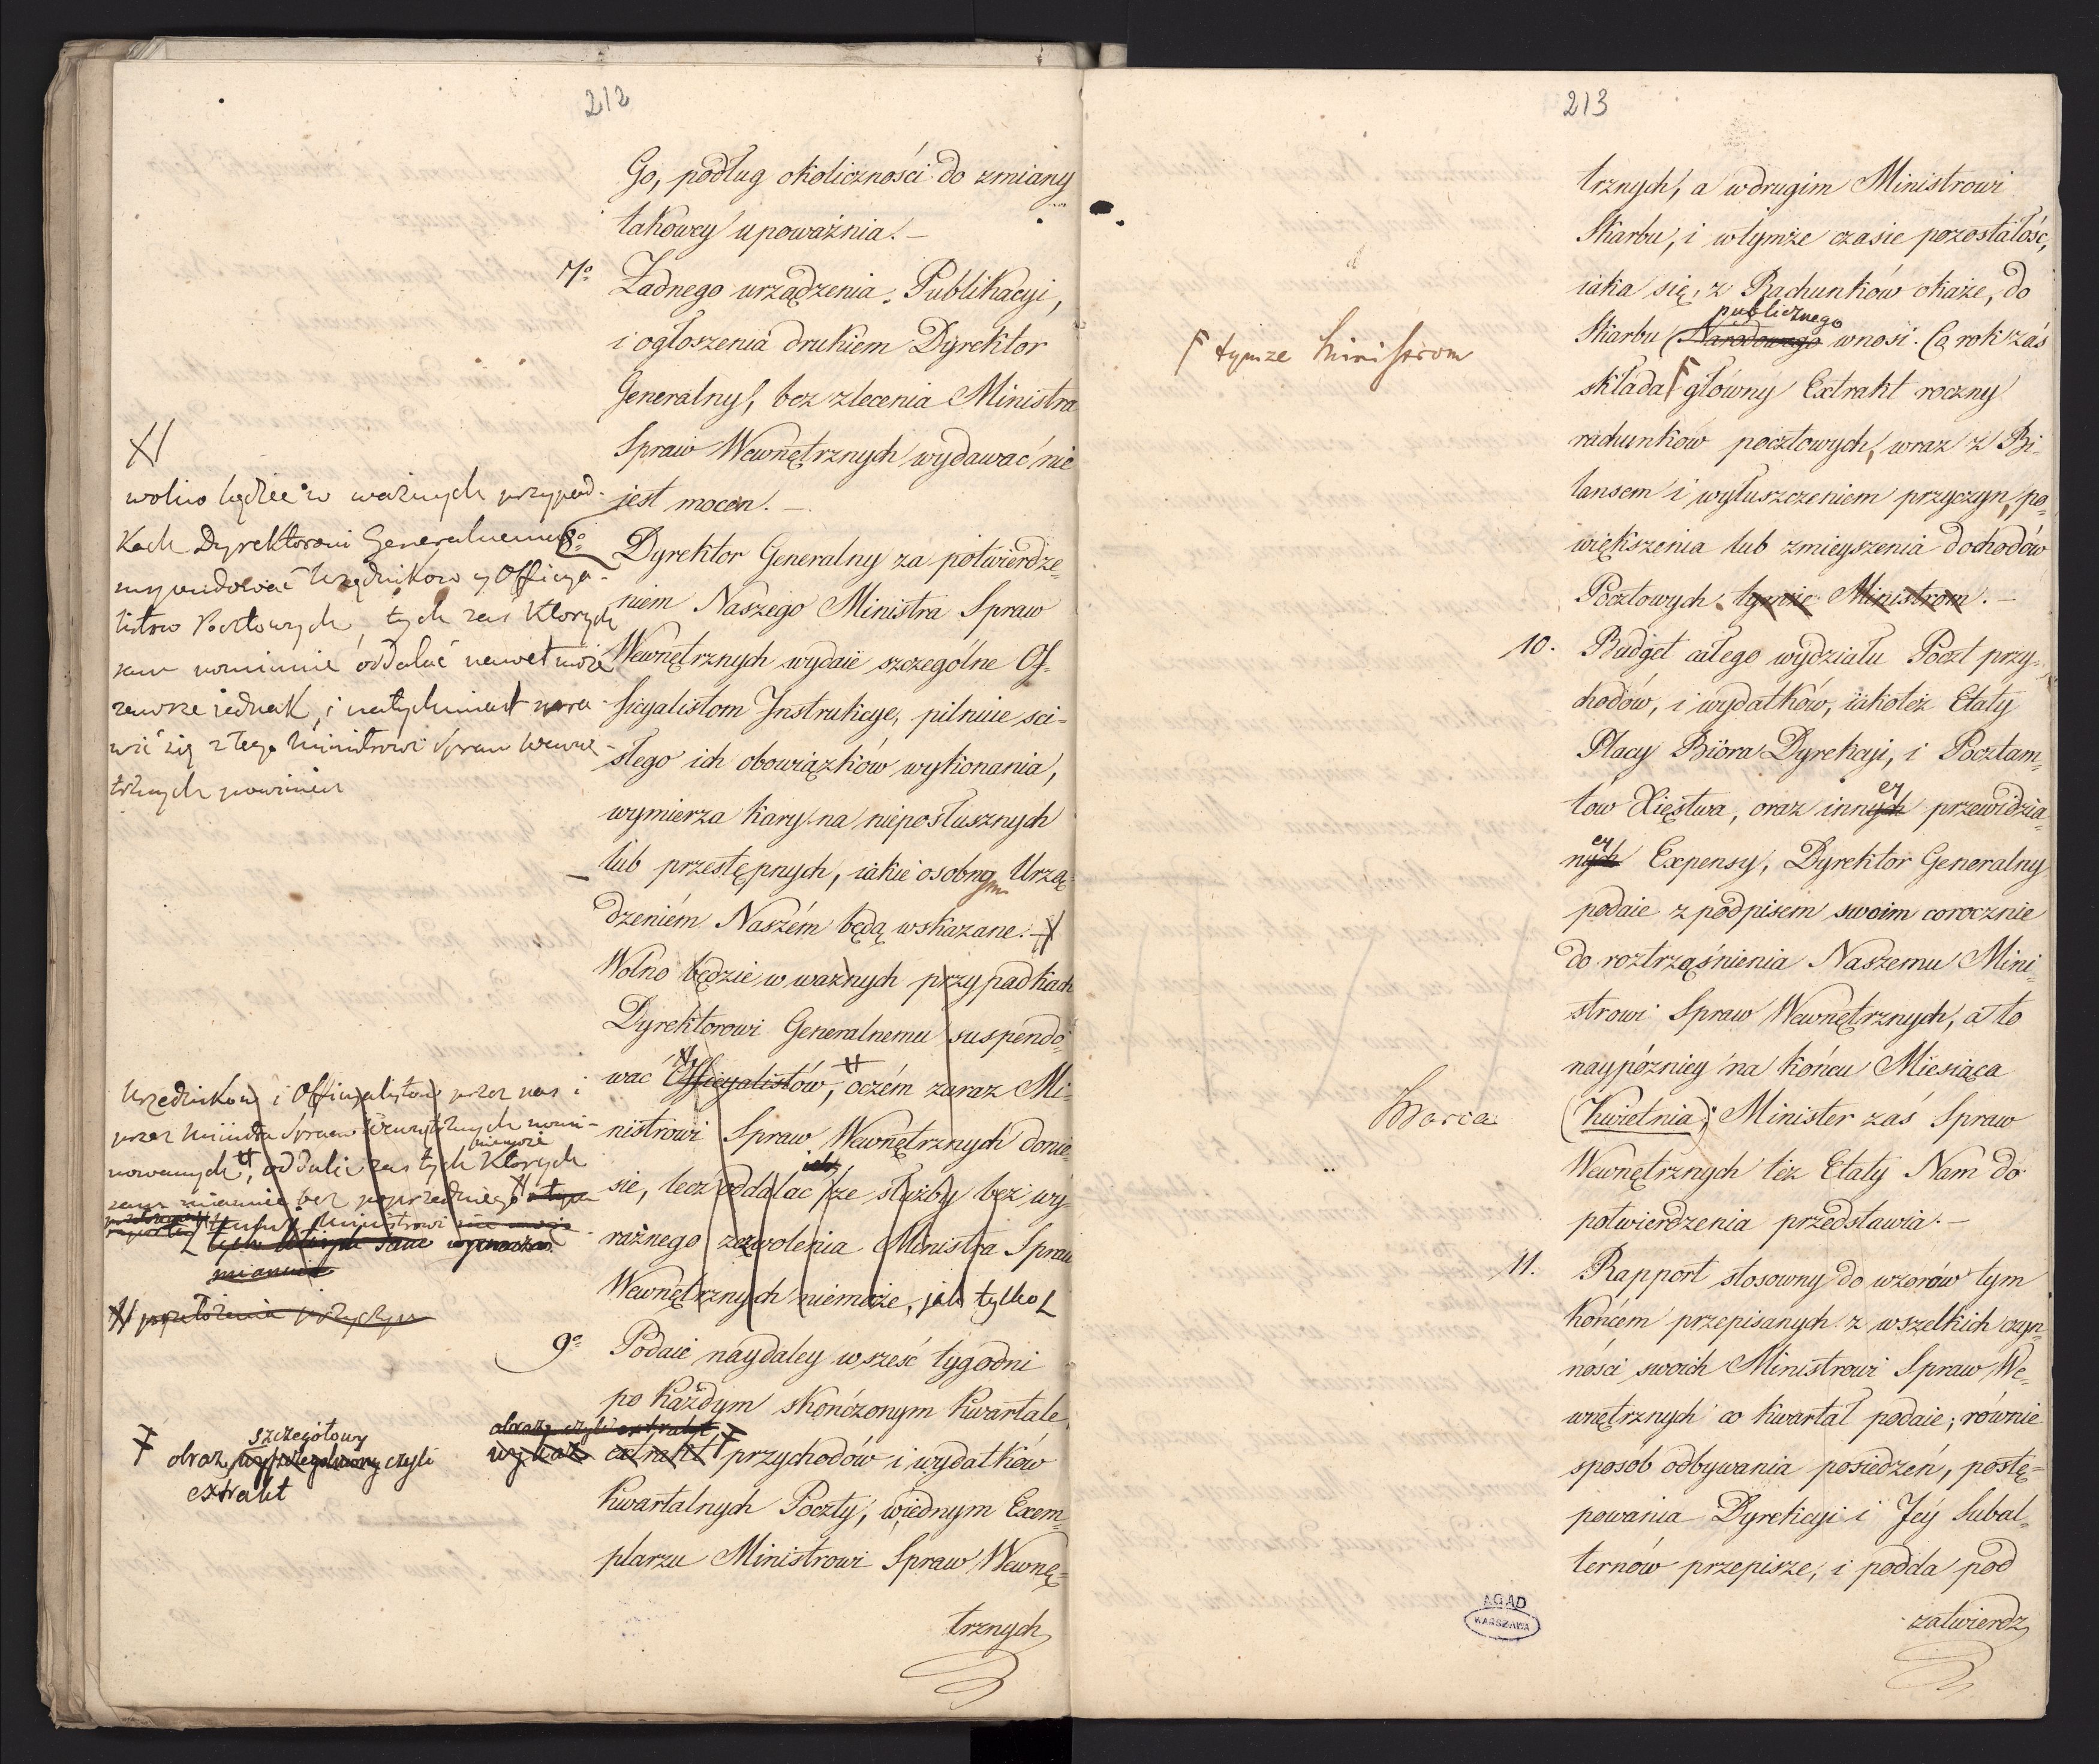 212
Go, podług okoliczności do zmiany
takowey upoważnia. —
7o Żadnego urządzenia, Publikacyi,
i ogłoszenia drukiem Dyrektor
Generalny, bez zlecenia Ministra
Spraw Wewnętrznych wydawać nie
jest mocen. —
8o Dyrektor Generalny za potwierdze=
niem Naszego Ministra Spraw
Wewnętrznych wydaie szczególne Of=
ficyalistom Instrukcye, pilnuie sci=
słego ich obowiązków wykonania,
wymierza kary na nieposłusznych
lub przestępnych, iakie osobnym Urzą=
dzeniém Naszém będą wskazane. —
Wolno będzie w ważnych przypadkach
Dyrektorowi Generalnemu suspendo=
wać Officyalistów, oczém zaraz Mi=
nistrowi Spraw Wewnętrznych donie=
sie, lecz oddalać ich ze służby bez wy=
raźnego zezwolenia Ministra Spraw
Wewnętrznych niemoże, jak tylko
9o Podaie naydaley w sześć tygodni
po każdym skończonym kwartale,
obraz czyli extrakt
wykaz extrakt przychodów i wydatków
kwartalnych Poczty, w iednym Exem=
plarzu Ministrowi Spraw Wewnę=
trznych
wolno będzie w ważnych przypad-
kach Dyrektorowi Generalnemu
Urzędnikow y Officya-
listow Pocztowych, tych zaś których
sam nominuie oddalać nawet może
zawsze iednak, i natychmiast
się z tego Ministrowi Spraw Wewnę-
trznych powinien
Urzędnikow i Officyalistow przez nas i
przez Ministra Spraw Wewnętrznych nomi-
nowanych, oddalić zas tych których
niemoże
sam mianuie bez poprzedniego
Ministrowi
tych których sam
mianuie
przełożenia przyczyn
szczegółowy
obraz czyli
extrakt
213
trznych, a w drugim Ministrowi
Skarbu, i wtymże czasie pozostałość,
iaka się z Rachunków okaże, do
publicznego
Skarbu Narodowego wnosi. Co rok zaś
składa główny Extrakt roczny
rachunków pocztowych, wraz z Bi=
lansem i wyłuszczeniem przyczyn, po=
większenia lub zmieyszenia dochodów
Pocztowych tymże Ministrom. —
tymze Ministrom
10. Budget całego wydziału Poczt przy=
chodów, i wydatków, iakoteż Etaty
Płacy Biöra Dyrekcyi, i Pocztam=
tów Xięstwa, oraz innych przewidzia=
ey
ey
nych Expensy, Dyrektor Generalny
podaie z podpisem swoim corocznie
do roztrząśnienia Naszemu Mini=
strowi Spraw Wewnętrznych, a to
naypóźniey na końcu Miesiąca
Marca
(Kwietnia); Minister zaś Spraw
Wewnętrznych też Etaty Nam do
potwierdzenia przedstawia. —
11. Rapport stosowny do wzorów tym
końcem przepisanych z wszelkich czyn=
ności swoich Ministrowi Spraw We=
wnętrznych co kwartał podaie; równie
sposób odbywania posiedzeń, postę=
powania Dyrekcyi i Jéy Subal=
ternów przepisze, i podda pod
zatwierdz
AGAD
WARSZAWA